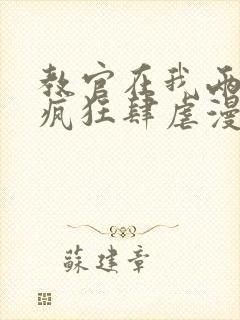 教官在我两
疯狂肆虐漫
蘇建章